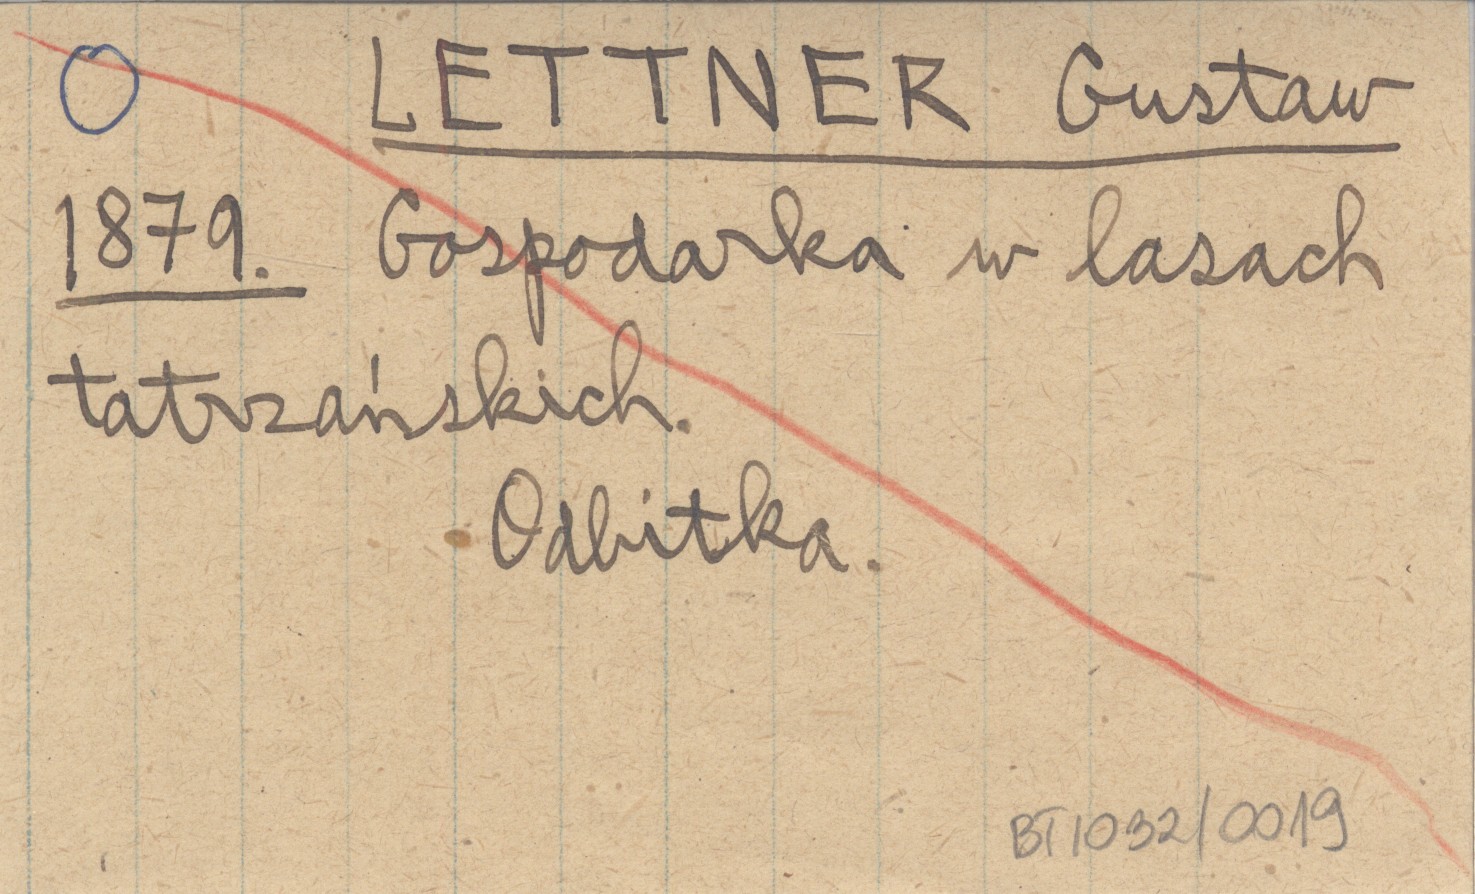 LETTNER Gustaw
1879. Gospodarka w lasach
tatrzańskich.
Odbitka.
BT1032/0019